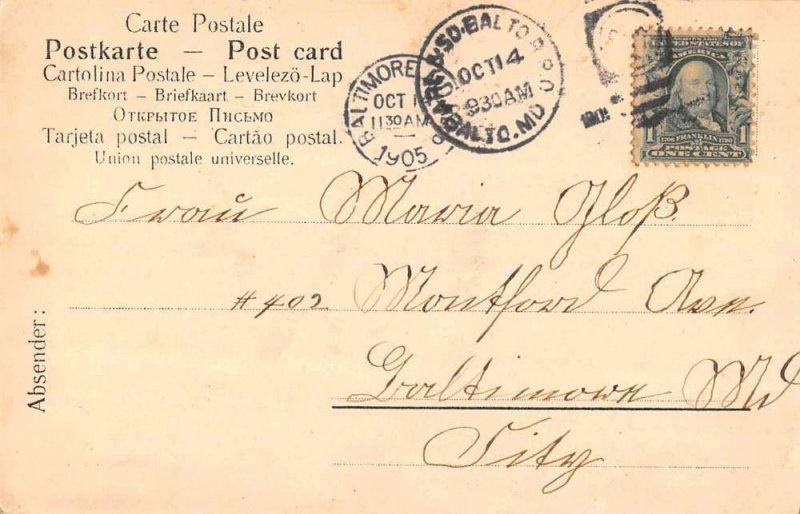 Carte Postale
Postkarte — Post card
Cartolina Postale – Levelező-Lap
Brefkort – Briefkaart – Brevkort
Открытое Письмо
Tarjeta postal – Cartão postal.
Union postale universelle.
BALTIMORE
OCT 1
1130AM
1905
SO. BALTO R.P.O.
OCT 14
930AM
BALTO. MD
UNITED STATES OF
AMERICA
1 1706 FRANKLIN 1790 1
POSTAGE
ONE CENT
Frau Maria Gloß.
#402 Montford Ave.
Baltimore Md
City
Absender: